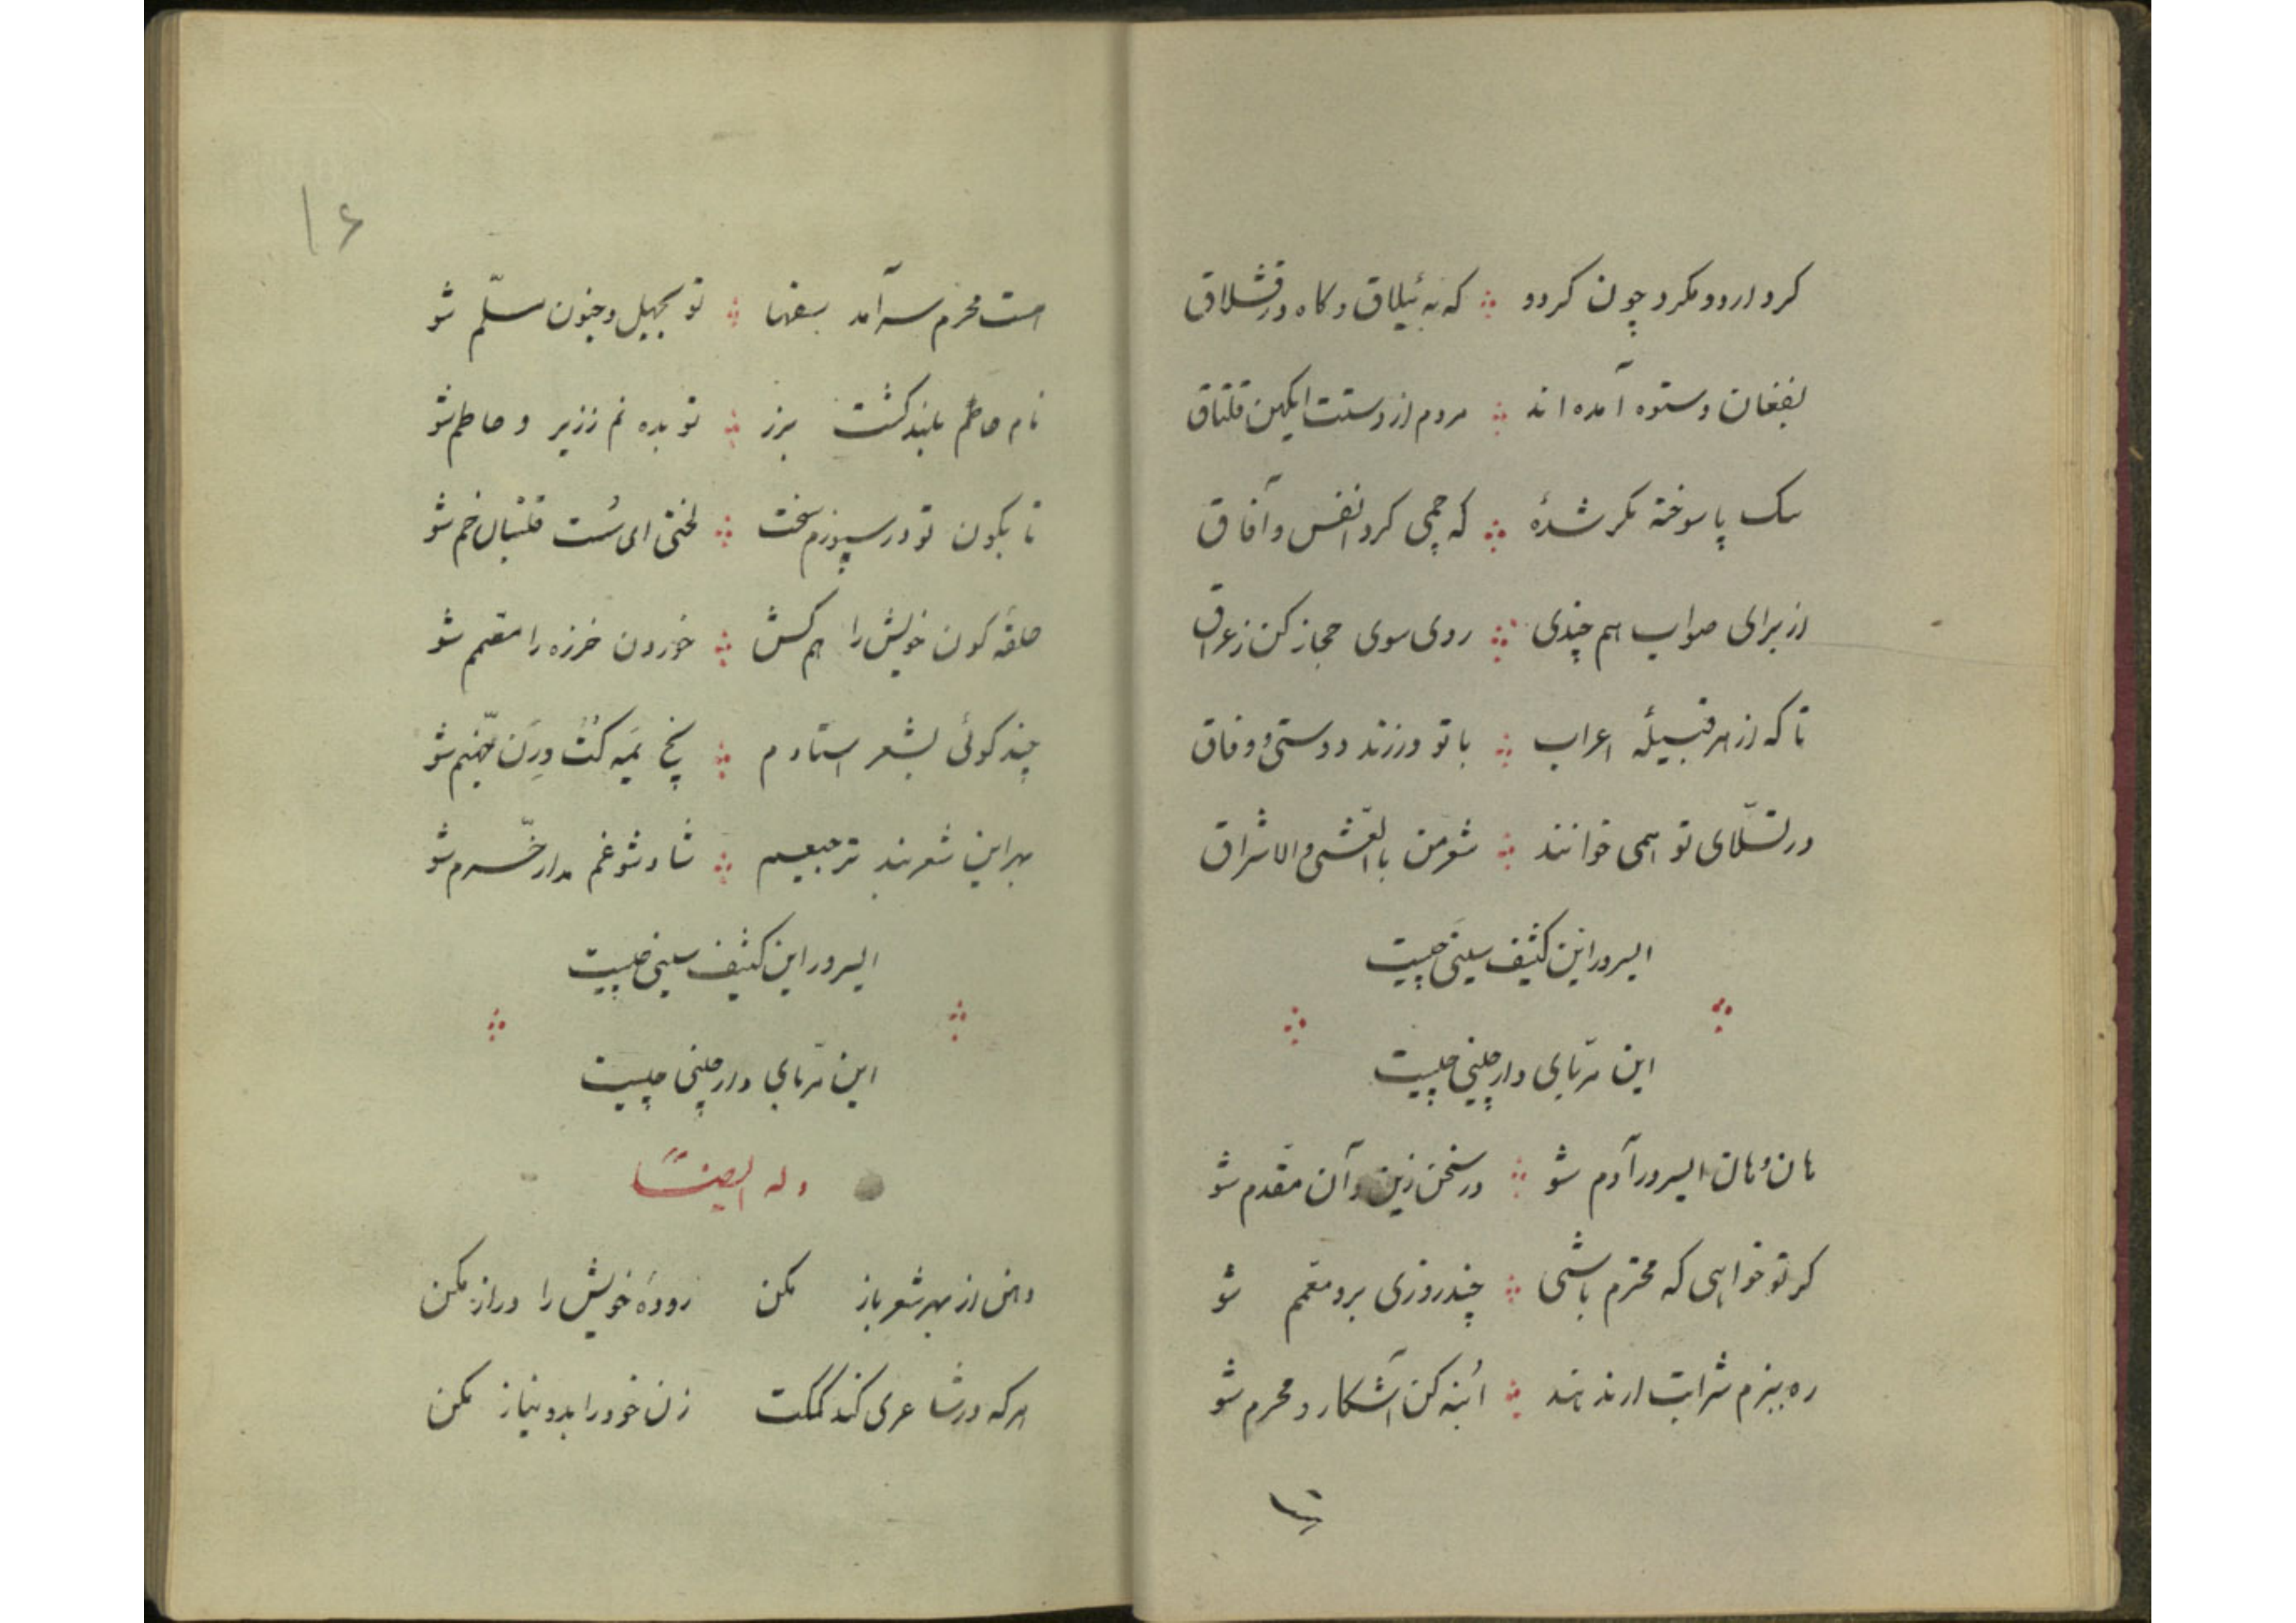 کرد اردو مکرد چون کردو ∴ که به ئیلاق و کاه در قشلاق
بفغان و ستوه آمده اند ∴ مردم از دستت ایکهن قلتاق
سک پا سوخته مکر شدهٔ ∴ که چمی کرد انفس و آفاق
از برای صواب هم چندی ∴ روی سوی حجاز کن ز عراق
تا که از هر قبیلهٔ اعراب ∴ با تو ورزند دوستی و وفاق
در تسلّای تو همی خوانند ∴ شعر من بالعشی والاشراق
ایسرور این کثیف سینی چیست
این ترتابی دارچینی چیست
هان و هان ایسرور آدم شو ∴ در سخن زین و آن مقدم شو
کر تو خواهی که محترم باشی ∴ چند روزی برو معمم شو
ره ببزم شرابت ار ندهند ∴ ابنه کن آشکار و محرم شو
۱۶
است محرم سرآمد سفها ∴ تو بجهل و جنون مسلّم شو
نام حاطم بلند کشت ببرز ∴ تو بده نم ززیر و حاطم شو
تا بکون تو در سپوزم سخت ∴ لختی ای سُست قلتبان خم شو
حلقه کون خویش را هم کش ∴ خوردن خرزه را مصمم شو
چند کوئی بشعر استادم ∴
بهر این شعر بند ترجیعم ∴ شاد شو غم مدار خرّم شو
ایسرور این کثیف سینی چیست
این ترتابی دارچینی چیست
وله ایضاً
دهن از بهر شعر باز مکن رودهٔ خویش را دراز مکن
هرکه در شاعری کند کمکت زن خود را بدو نیاز مکن